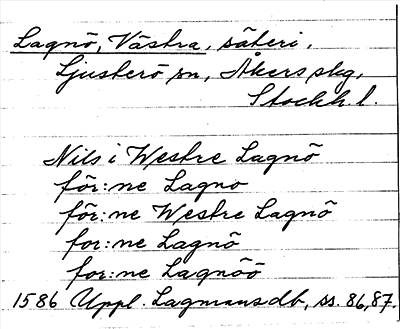 Lagnö, Västra, säteri,
Ljusterö sn, Åkers skg,
Stockh. l.
Nils i Westre Lagnö
för:ne Lagno
för:ne Westre Lagnö
for:ne Lagnö
for:ne Lagnöö
1586 Uppl. Lagmansdb, ss. 86, 87.